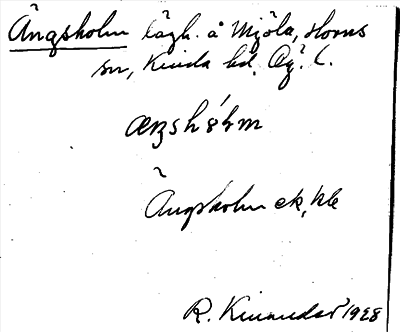 Ängsholm lägh. å Mjöla, Horns
sn, Kinda hd, Ög. l.
Ängsholm ek, hle
R. Kinnander 1928